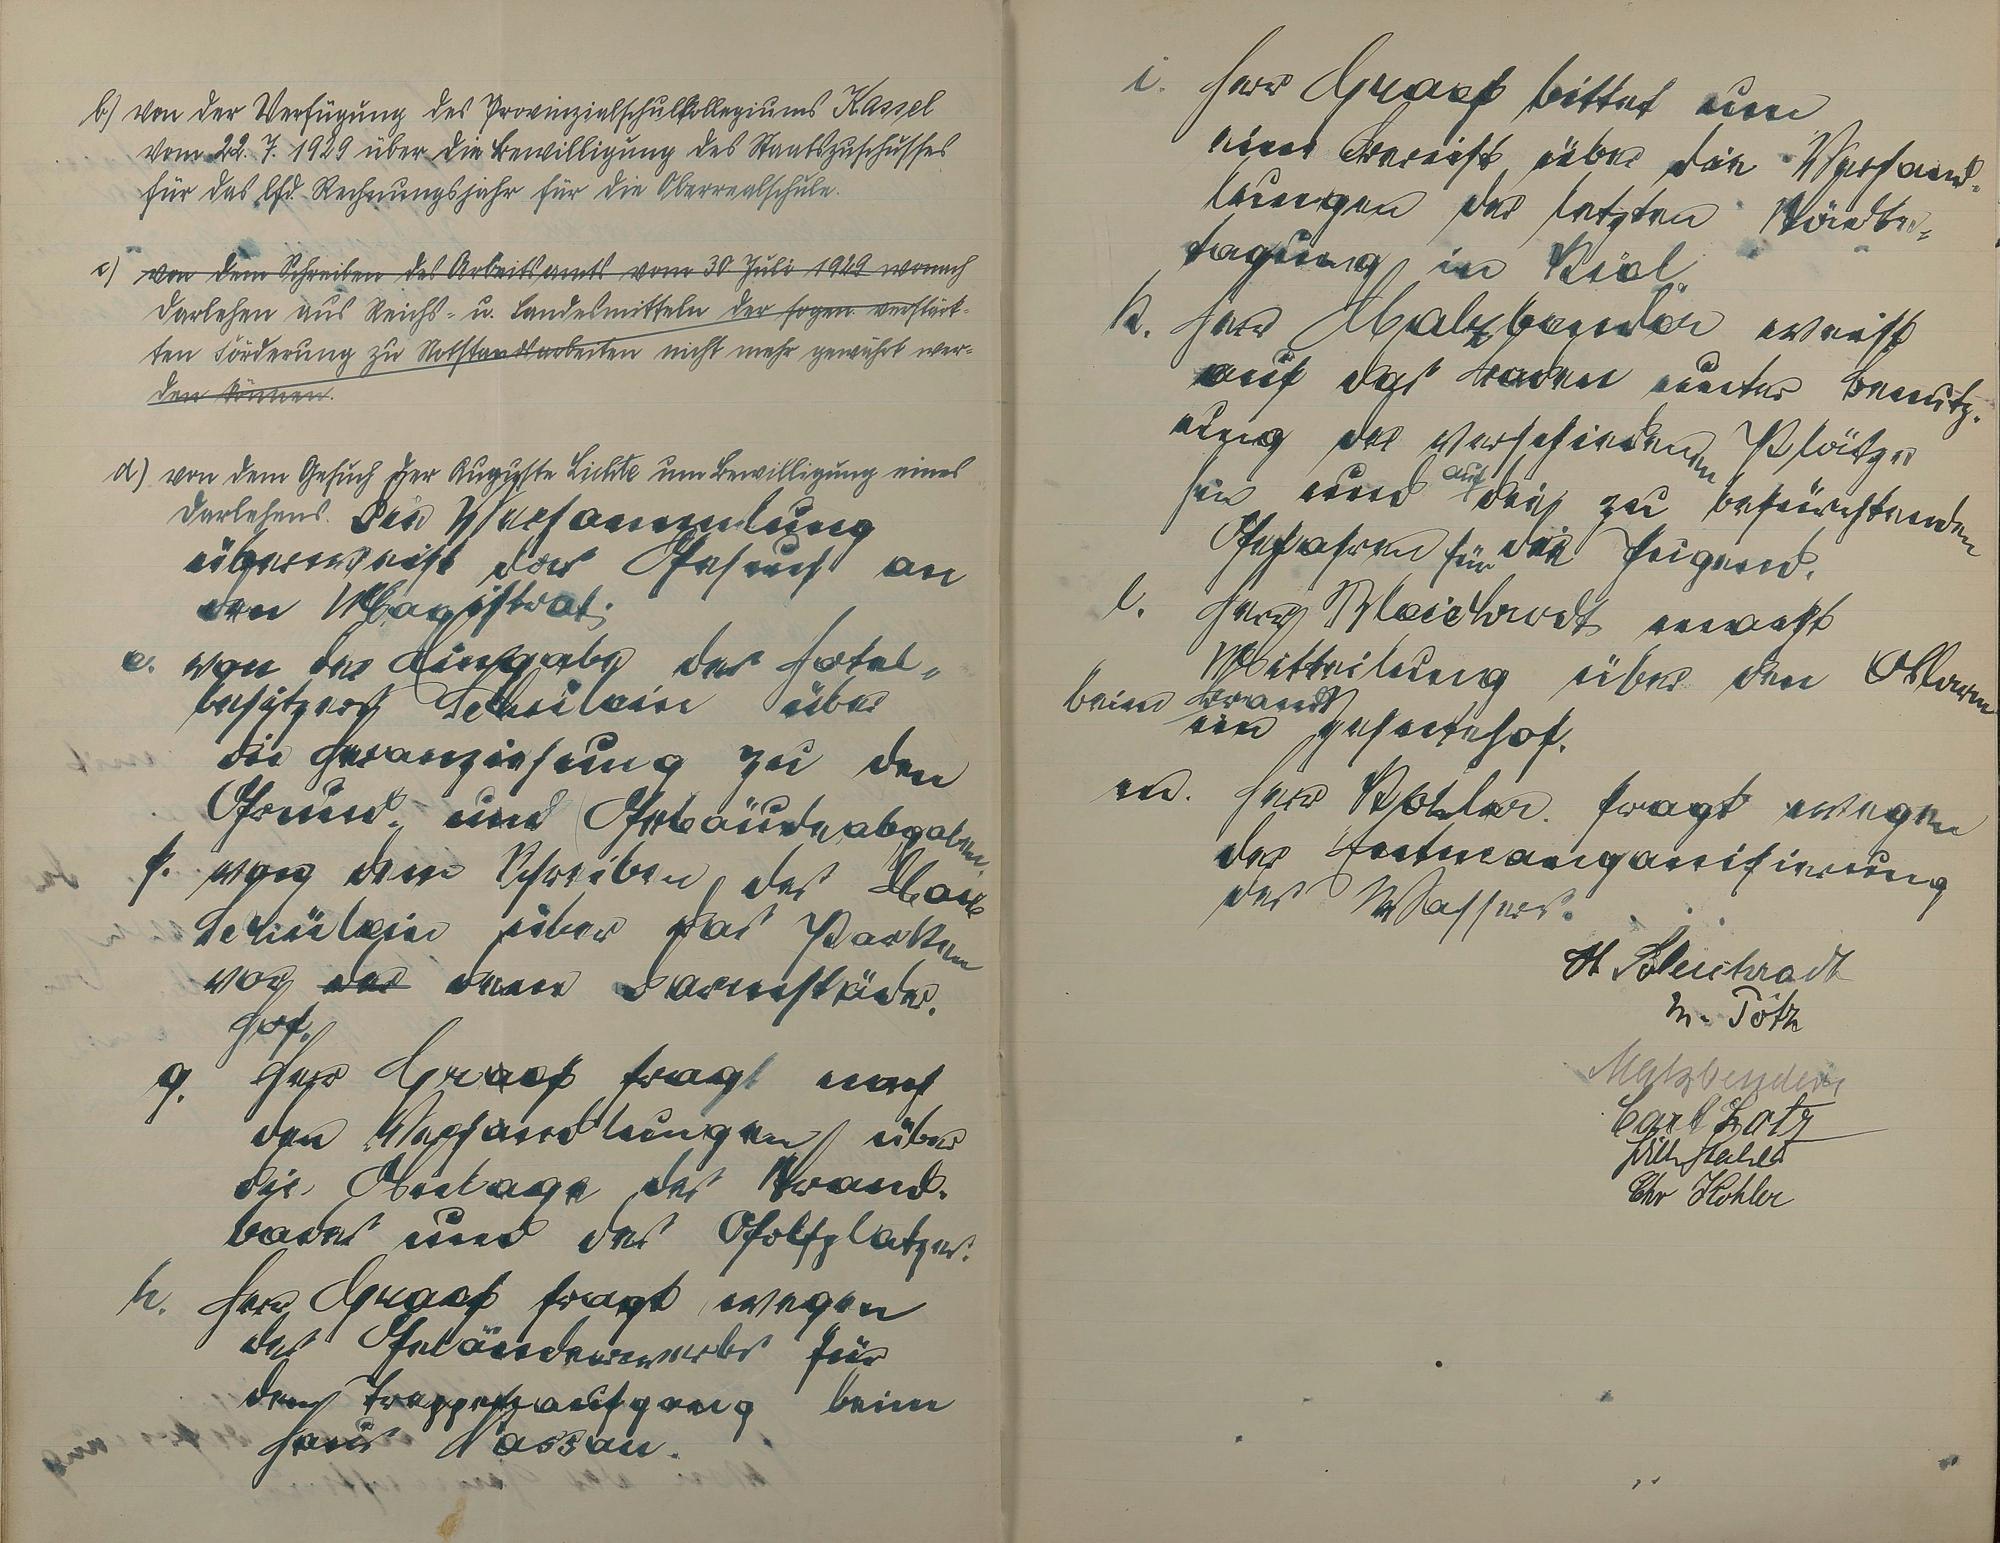 b) von der Verfügung des Provinzialschulkollegiums Kassel
vom 22. 7. 1929 über die Bewilligung des Staatszuschusses
für das lfd. Rechnungsjahr für die Oberrealschule.
c) von dem Schreiben des Arbeitsamts vom 30 Juli 1929 wonach
Darlehen aus Reichs- u. Landesmitteln der sogen verstärk-
ten Förderung zu Notstandsarbeiten nicht mehr gewährt wer-
den können.
d) von dem Gesuch der Auguste Lichte um Bewilligung eines
Darlehens. Die Versammlung
überweist das Gesuch an
den Magistrat.
e. von der Eingabe des Hotel-
besitzers Schülein über
die Heranziehung zu den
Grund- und Gebäudeabgaben.
f. von dem Schreiben des
Schülein über das Parken
vor der dem Darmstädter
Hof.
g. Herr Graef fragt nach
den Verhandlungen über
die Anlage des Strand-
bades und des Golfplatzes.
h. Herr Graef fragt wegen
des Geländeerwerbs für
den Treppenaufgang beim
Haus Nassau.
i. Herr Graef bittet um
einen Bericht über die Verhand-
lungen der letzten Städte-
tagung in Kiel.
k. Herr Malzbender weist
auf das Baden unter Benutz-
ung der verschiedenen Plätze
hin und auf die zu befürchtenden
Gefahren für die Jugend.
l. Herr Bleichrodt macht
Mitteilung über den Alarm
beim Brand
im
m. Herr Kohler fragt wegen
der Entmanganisierung
des Wassers.
H Bleichrodt
M. Götz
Malzbender
Carl Lotz
Chr Kohler